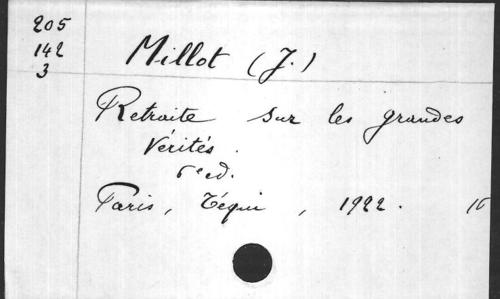 205
142
3
Millot (J.)
Retraite sur les grandes
Vérités.
6e ed.
Paris, Téqui, 1922. 16